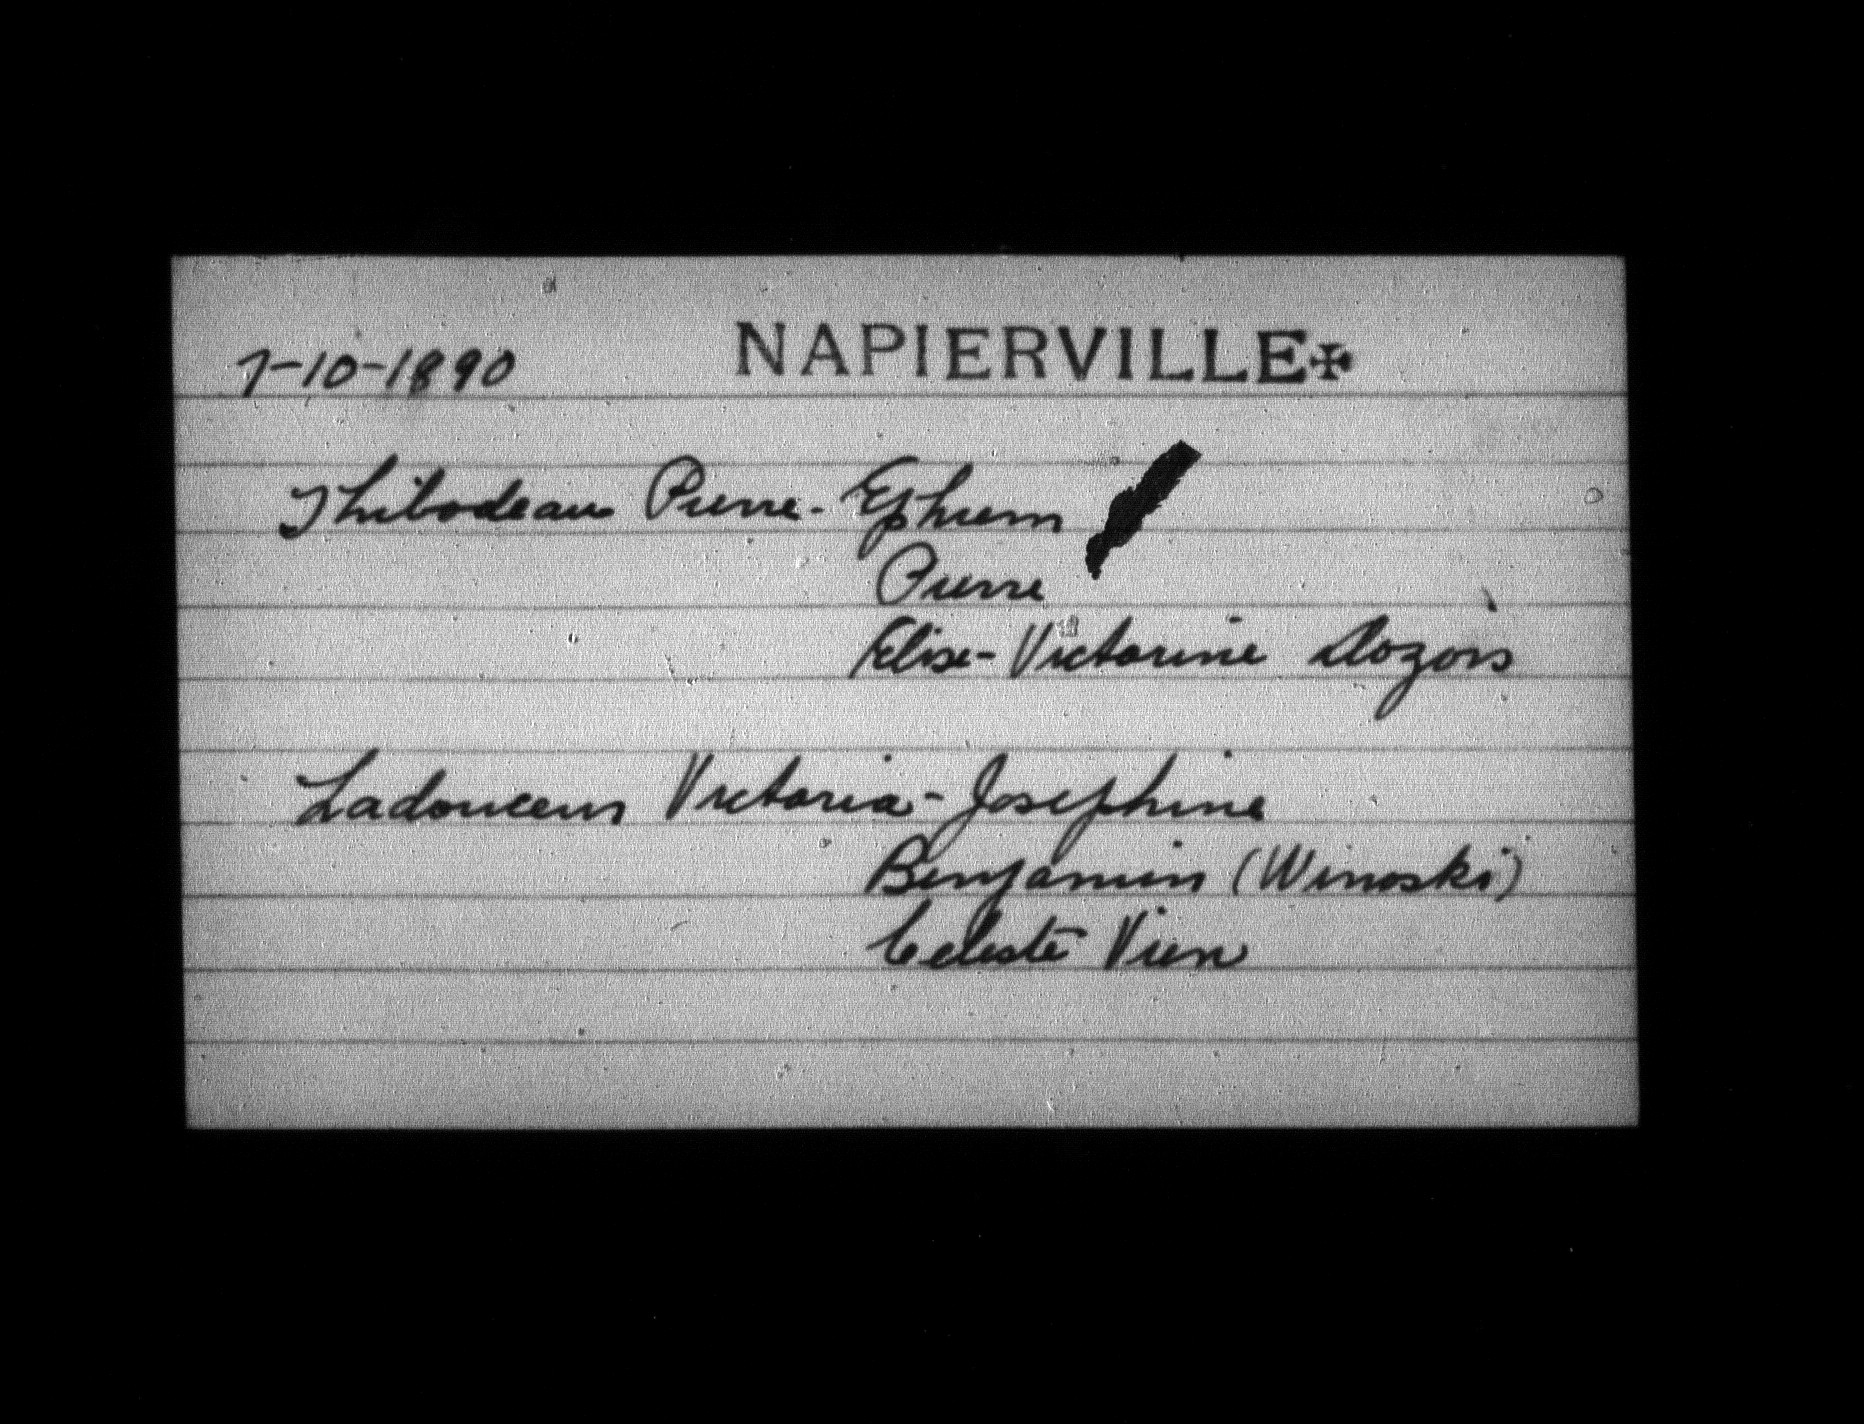 7-10-1890 NAPIERVILLE✠
Thibodeau Pierre-Ephrem
Pierre
Elise-Victorine Dozois
Ladouceur Victoria-Josephine
Benjamin (Winoski)
Celeste Vien